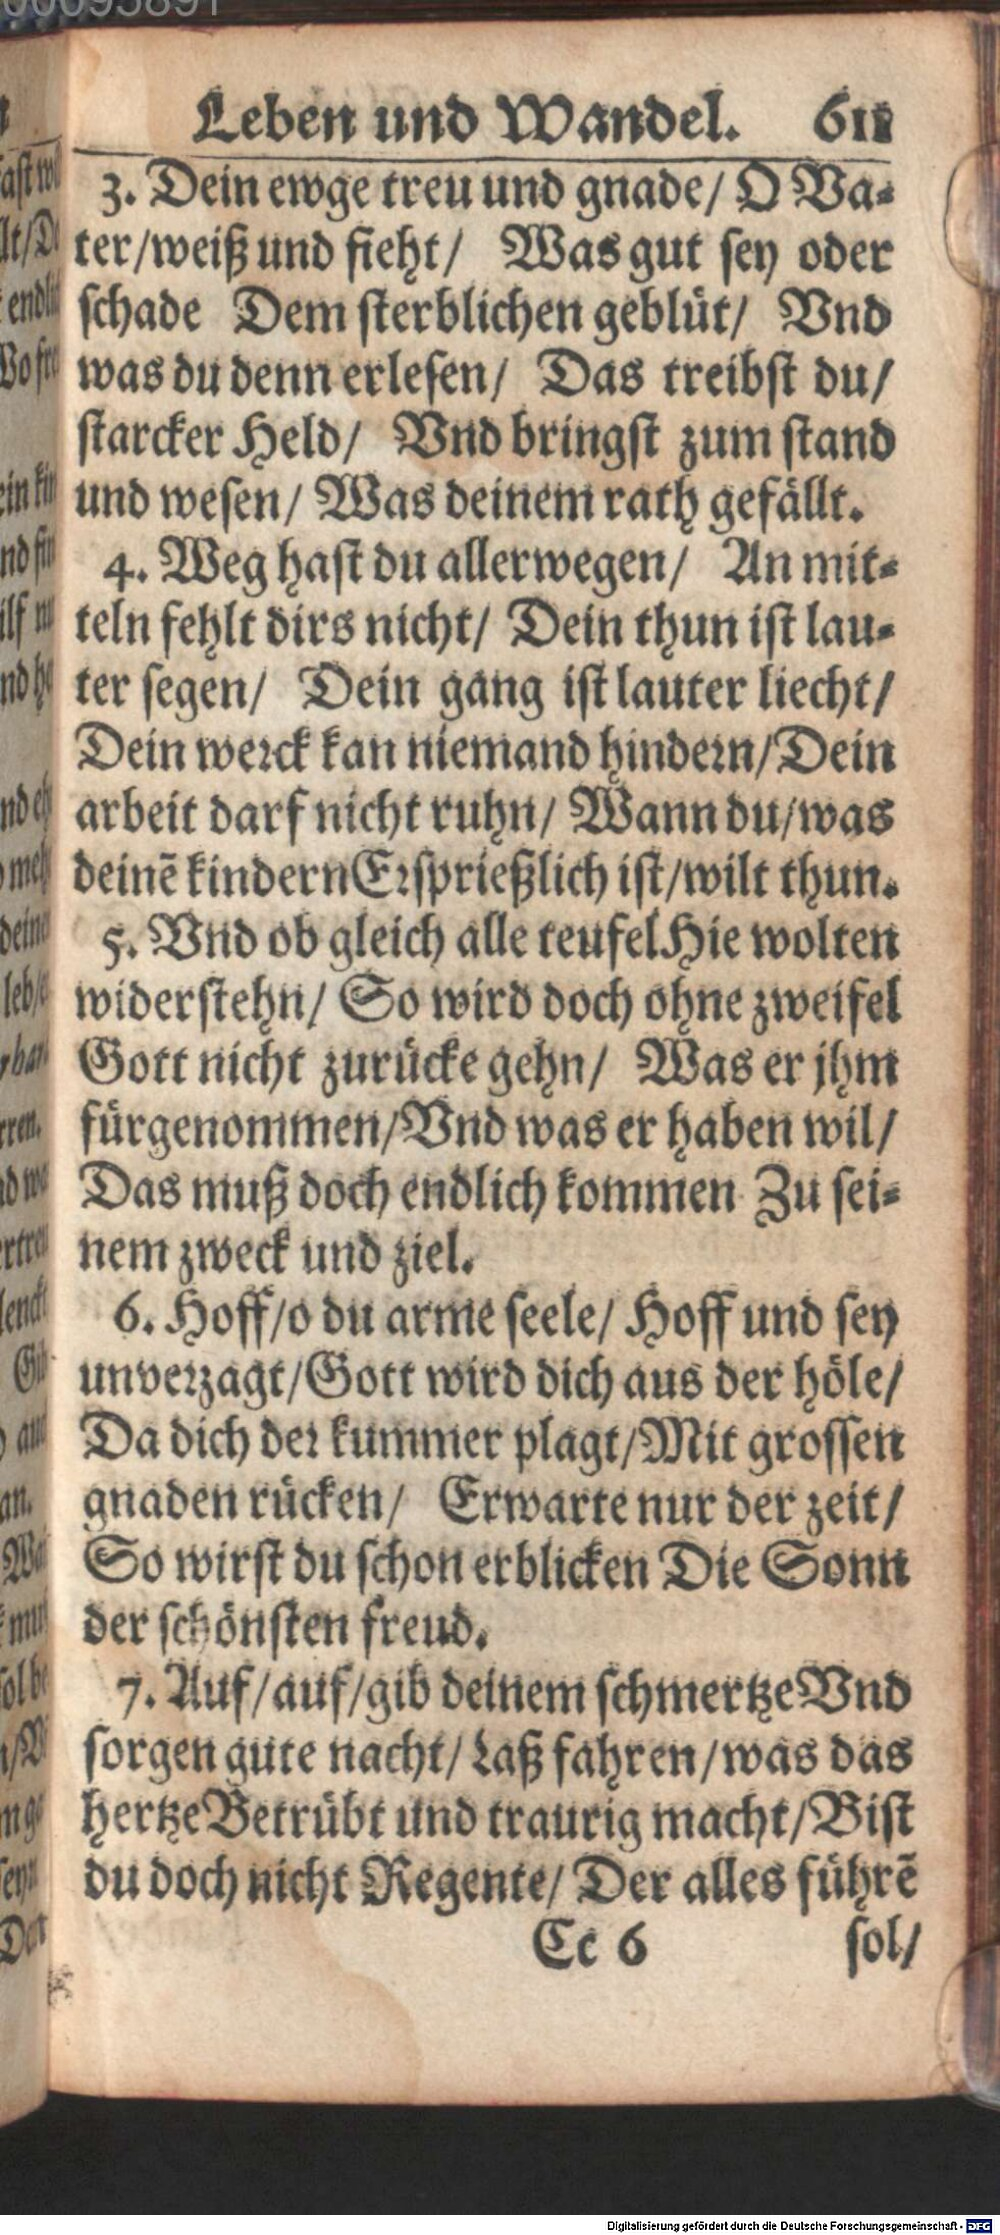 00095891
Leben und Wandel. 611
3. Dein ewge treu und gnade/ O Va-
ter/weiß und sieht/ Was gut sey oder
schade Dem sterblichen geblüt/ Vnd
was du denn erlesen/ Das treibst du/
starcker Held/ Vnd bringst zum stand
und wesen/ Was deinem rath gefällt.
4. Weg hast du allerwegen/ An mit-
teln fehlt dirs nicht/ Dein thun ist lau-
ter segen/ Dein gang ist lauter liecht/
Dein werck kan niemand hindern/Dein
arbeit darf nicht ruhn/ Wann du/was
deinē kindern Ersprießlich ist/wilt thun.
5. Vnd ob gleich alle teufel Hie wolten
widerstehn/ So wird doch ohne zweifel
Gott nicht zurücke gehn/ Was er jhm
fürgenommen/Vnd was er haben wil/
Das muß doch endlich kommen Zu sei-
nem zweck und ziel.
6. Hoff/o du arme seele/ Hoff und sey
unverzagt/Gott wird dich aus der höle/
Da dich der kummer plagt/Mit grossen
gnaden rücken/ Erwarte nur der zeit/
So wirst du schon erblicken Die Sonn
der schönsten freud.
7. Auf/auf/gib deinem schmertze Vnd
sorgen gute nacht/ Laß fahren/was das
hertze Betrübt und traurig macht/Bist
du doch nicht Regente/ Der alles führē
Cc 6 sol/
Digitalisierung gefördert durch die Deutsche Forschungsgemeinschaft - DFG